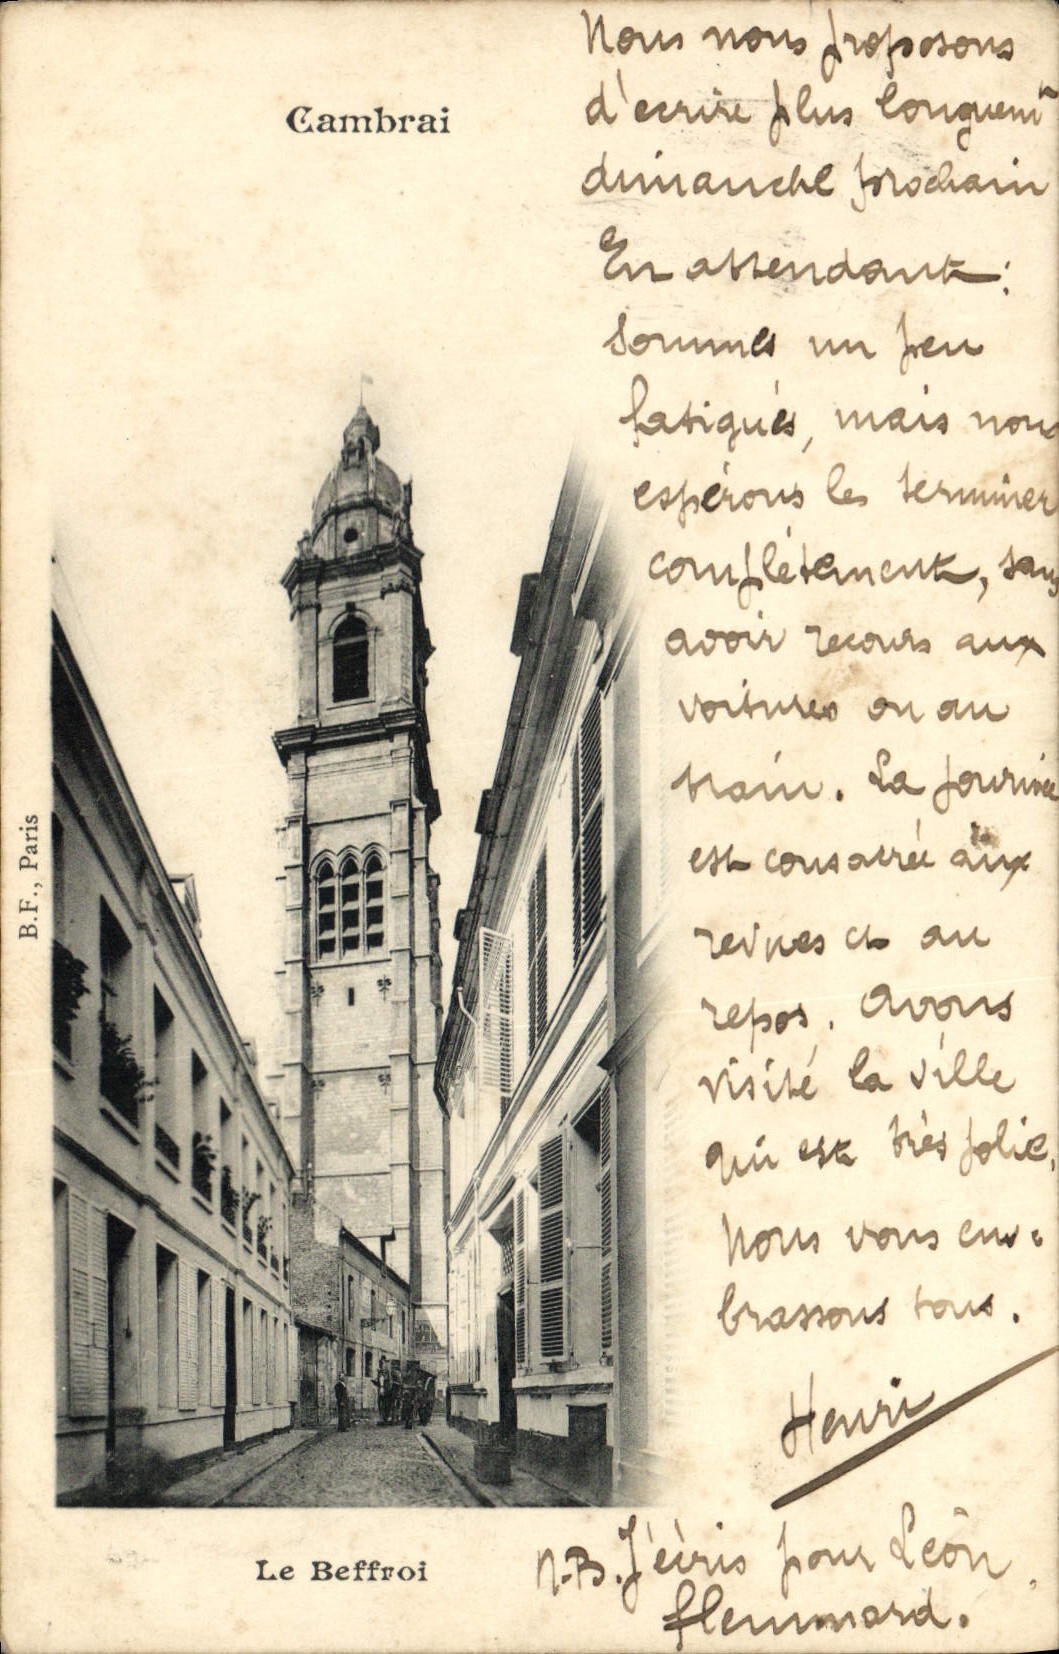 Cambrai
Nous nous proposons
d'ecrire plus longuemt
dimanche prochain
En attendant :
Sommes un peu
fatigués, mais nous
espérons les terminer
complètement, sans
avoir recours aux
voitures ou au
train. La journée
est consacrée aux
revues et au
repos. Avons
visité la ville
qui est très jolie.
Nous vous em-
brassons tous.
Henri
N.B. J'écris pour Léon
flemmard.
Le Beffroi
B.F., Paris